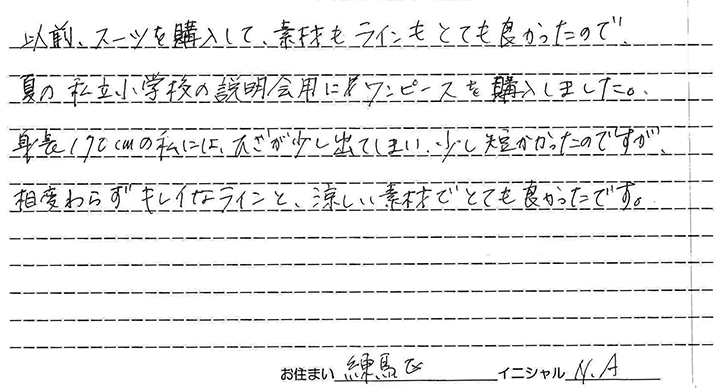 以前、スーツを購入して、素材もラインもとても良かったので、
夏の私立小学校の説明会用にワンピースを購入しました。
身長170cmの私には、ひざが少し出てしまい、少し短かかったのですが、
相変わらずキレイなラインと、涼しい素材でとても良かったです。
お住まい 練馬区 イニシャル N.A